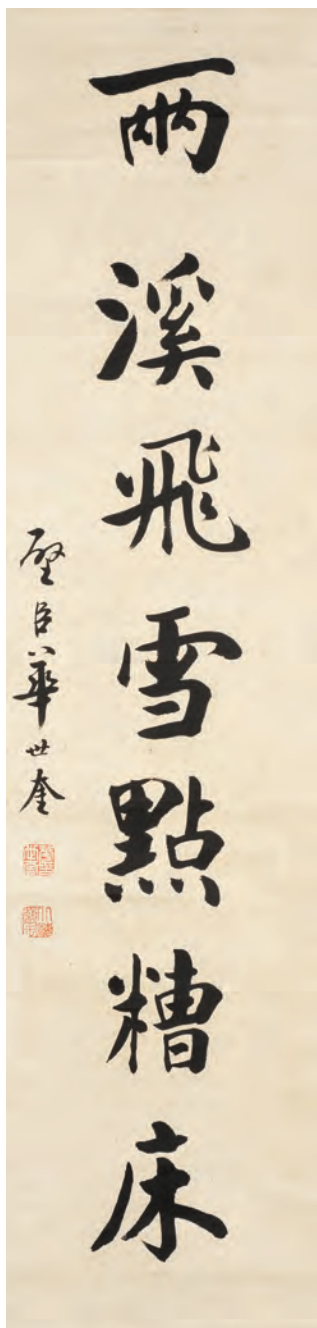 兩溪飛雪點糟床
璧臣華世奎